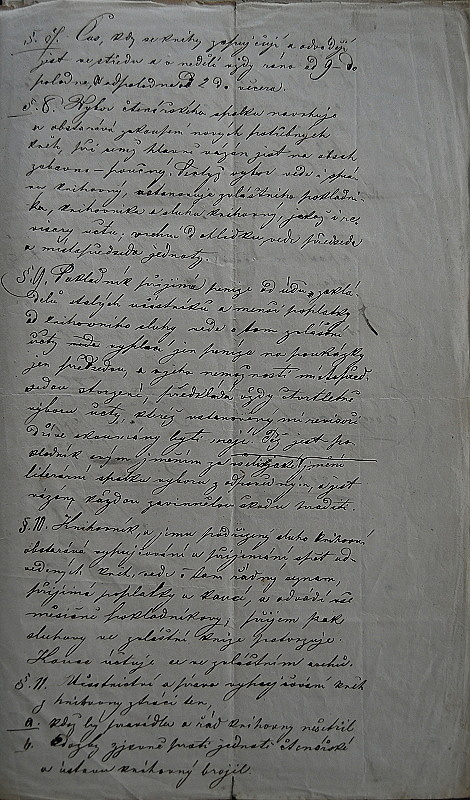 §. 7. Čas, kdy se knihy zapujčují a odvádějí
jest ve středu a v neděli vždy ráno od 9 do
poledne, a odpoledne od 2 do večera.
§. 8. Výbor čtenářského spolku navrhuje
a obstarává zakoupení nových potřebných
kněh, při čemž hlavní vázán jest na obsah
zábavno-poučný. Tentýž výbor vede i sprá-
vu knihovny, ustanovuje zvláštního pokladní-
ka, knihovníka a sluhu knihovny, jakož i re-
visory účtů; vrchní dohlídku vede předseda
a místopředseda jednoty.
§. 9. Pokladník přijímá peníze od údů, zakla-
datelů stálých účastníků a menší poplatky
od knihovního sluhy vede o tom zvláštní
účty vyplácí jen peníze na poukázky
jen předsedou, a v jeho nemožnosti místopřed-
sedou stvrzené, předkládá vždy čtvrtletně
výboru účty, které ustanovenými revisory
dříve zkoumány býti mají. Též jest po-
kladník svým jměním za jmění
literární spolku výboru z odpovědným, a jest
vázán každou zaviněnou škodu hraditi.
§. 10. Knihovník, a jemu podřízený sluha knihovní
obstarává vypujčování a přijímání zpět od-
vedených kněh, vede o tom řádný seznam,
přijímá poplatky a kauci, a odvádí vše
měsíčně pokladníkovi; příjem pak
sluhovy ve zvláštní knize potvrzuje.
Kauce účtuje se ve zvláštním archu.
§. 11. Účastnictví a práva vypujčování kněh
z knihovny ztrácí ten,
a. kdož by pravidla a řád knihovny nešetřil
b. kdožby zjevně proti jednotě čtenářské
a ústavu knihovny brojil.